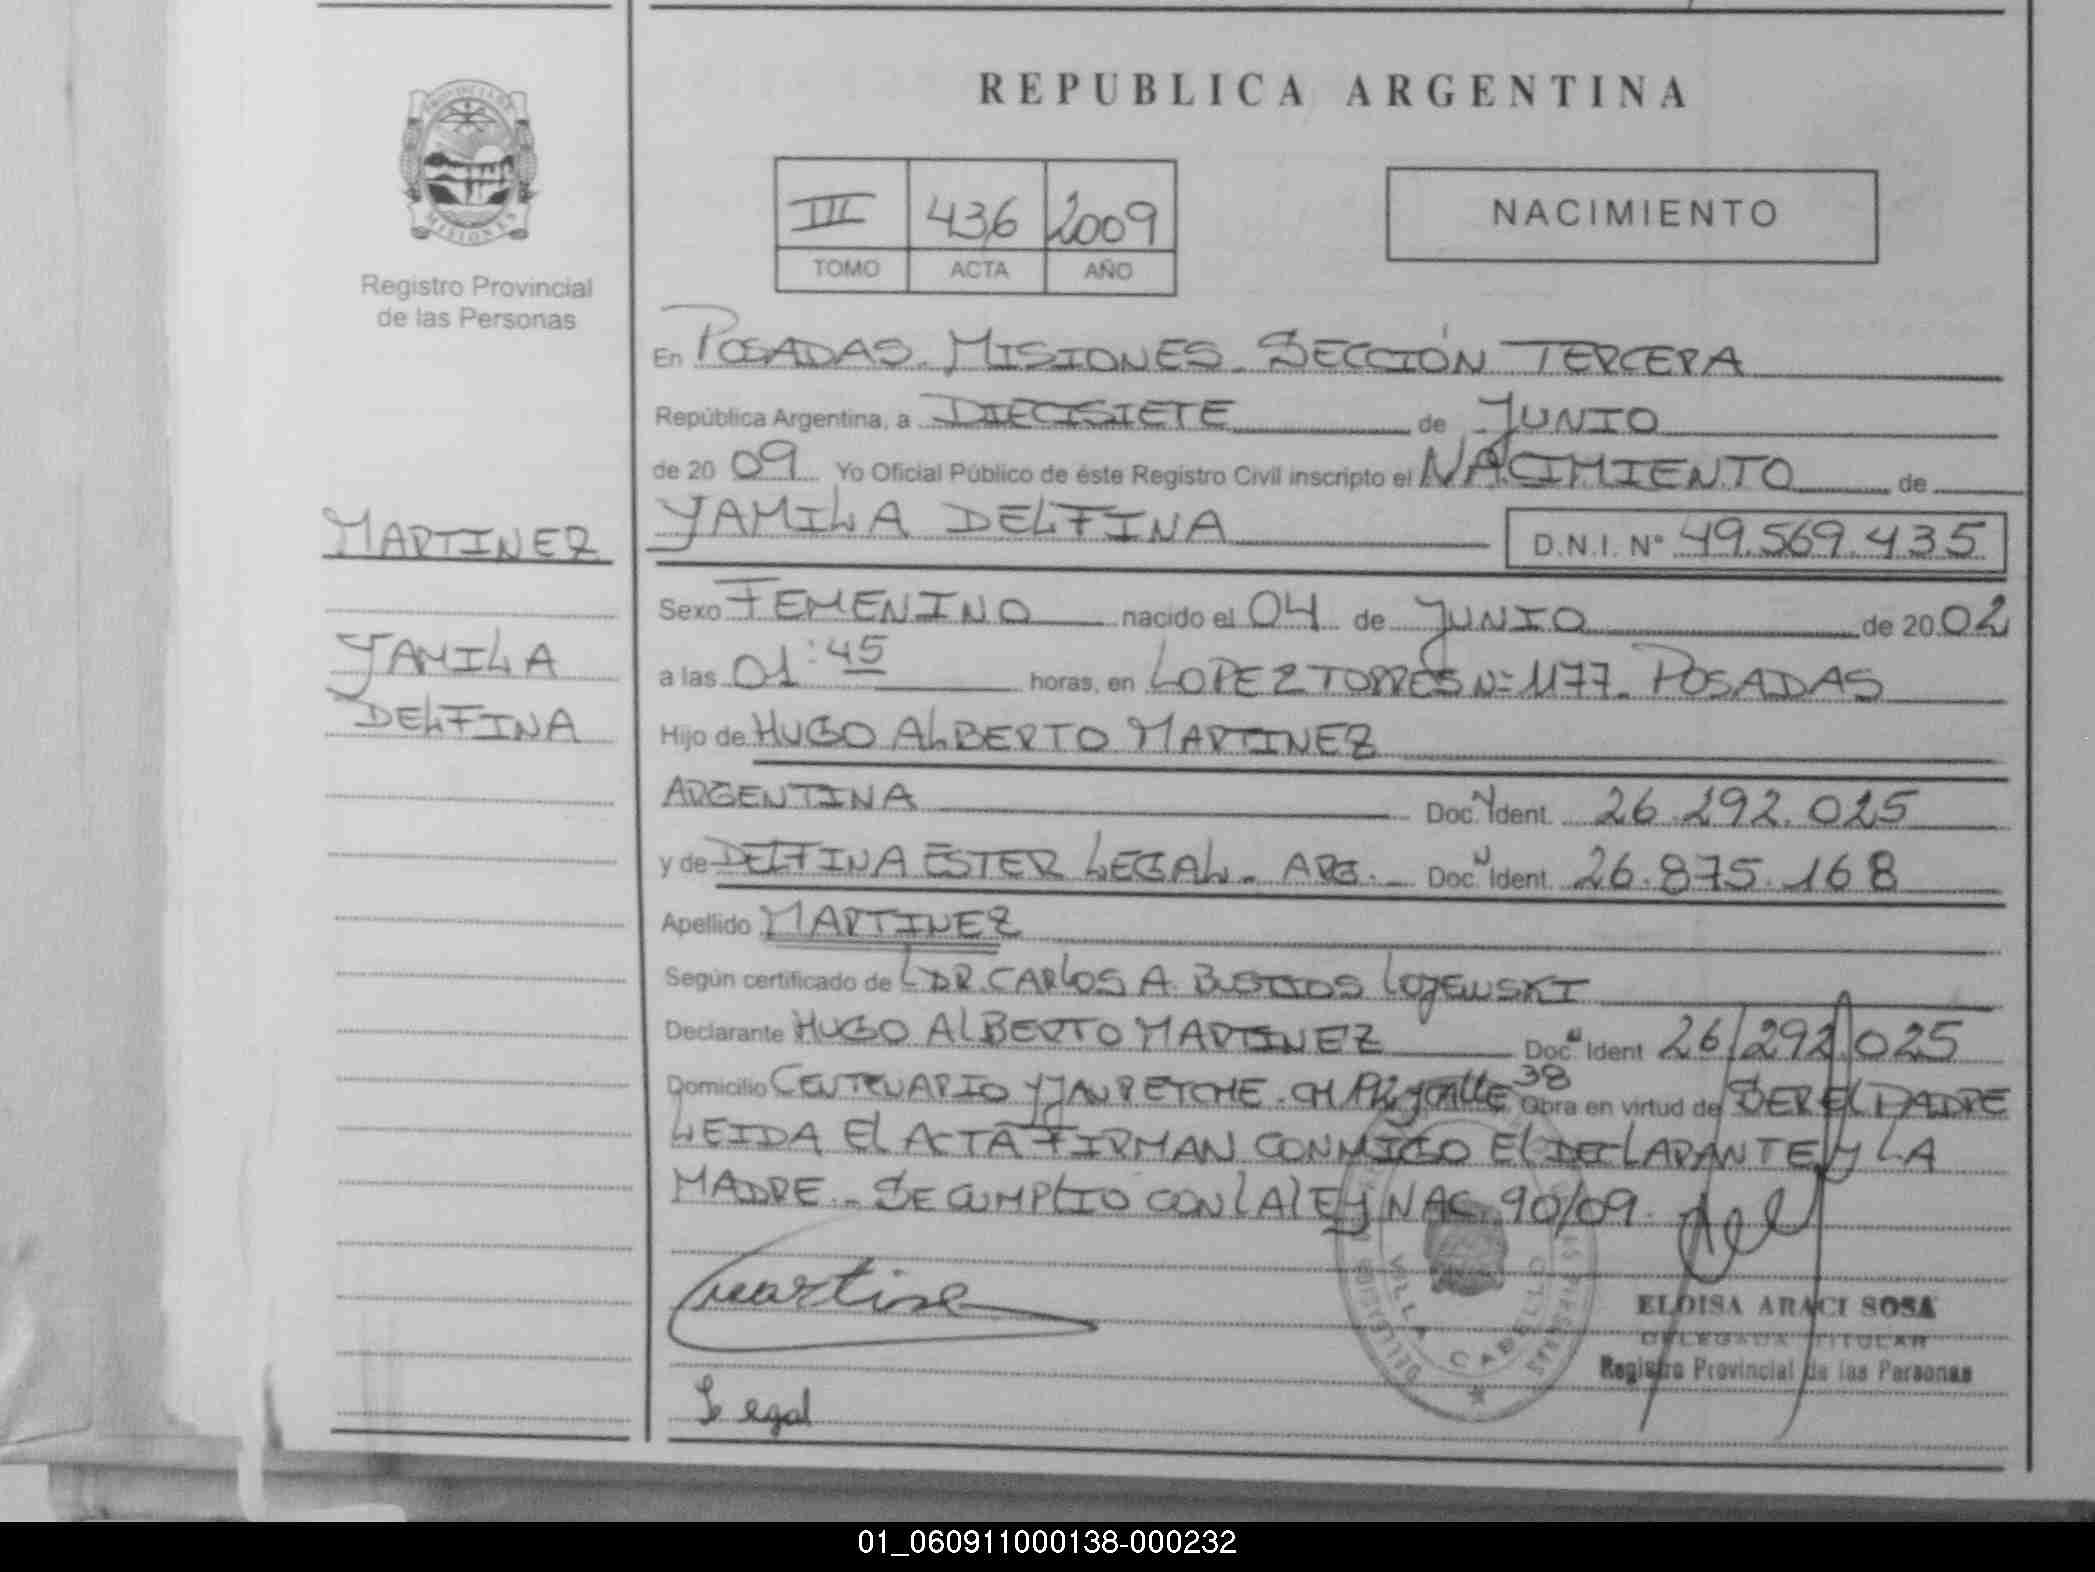 REPUBLICA ARGENTINA
PROVINCIA DE
MISIONES
Registro Provincial
de las Personas
III 436 2009
TOMO ACTA AÑO
NACIMIENTO
En POSADAS. MISIONES. SECCIÓN TERCERA
República Argentina, a DIECISIETE de JUNIO
de 20 09 Yo Oficial Público de éste Registro Civil inscripto el NACIMIENTO de
MARTINEZ
YAMILA DELFINA D.N.I. Nº 49.569.435
Sexo FEMENINO nacido el 04 de JUNIO de 20 02
YAMILA
DELFINA
a las 01:45 horas, en LOPEZ TORRES Nº 1177. POSADAS
Hijo de HUGO ALBERTO MARTINEZ
ARGENTINA Doc. N Ident. 26.292.025
y de DELFINA ESTER LEGAL. ARG. Doc. N Ident. 26.875.168
Apellido MARTINEZ
Según certificado de L DR. CARLOS A. BUSTOS LOJEWSKI
Declarante HUGO ALBERTO MARTINEZ Doc. N Ident 26/292.025
Domicilio CENTENARIO Y JAURETCHE. CH Y CALLE 38 Obra en virtud de SER EL PADRE
LEIDA EL ACTA FIRMAN CONMIGO EL DECLARANTE Y LA
MADRE. SE CUMPLIO CON LA LEY NAC. 90/09.
Martine
VILLA CABELLO
ELOISA ARACI SOSA
DELEGADA TITULAR
Registro Provincial de las Personas
Legal
01_060911000138-000232